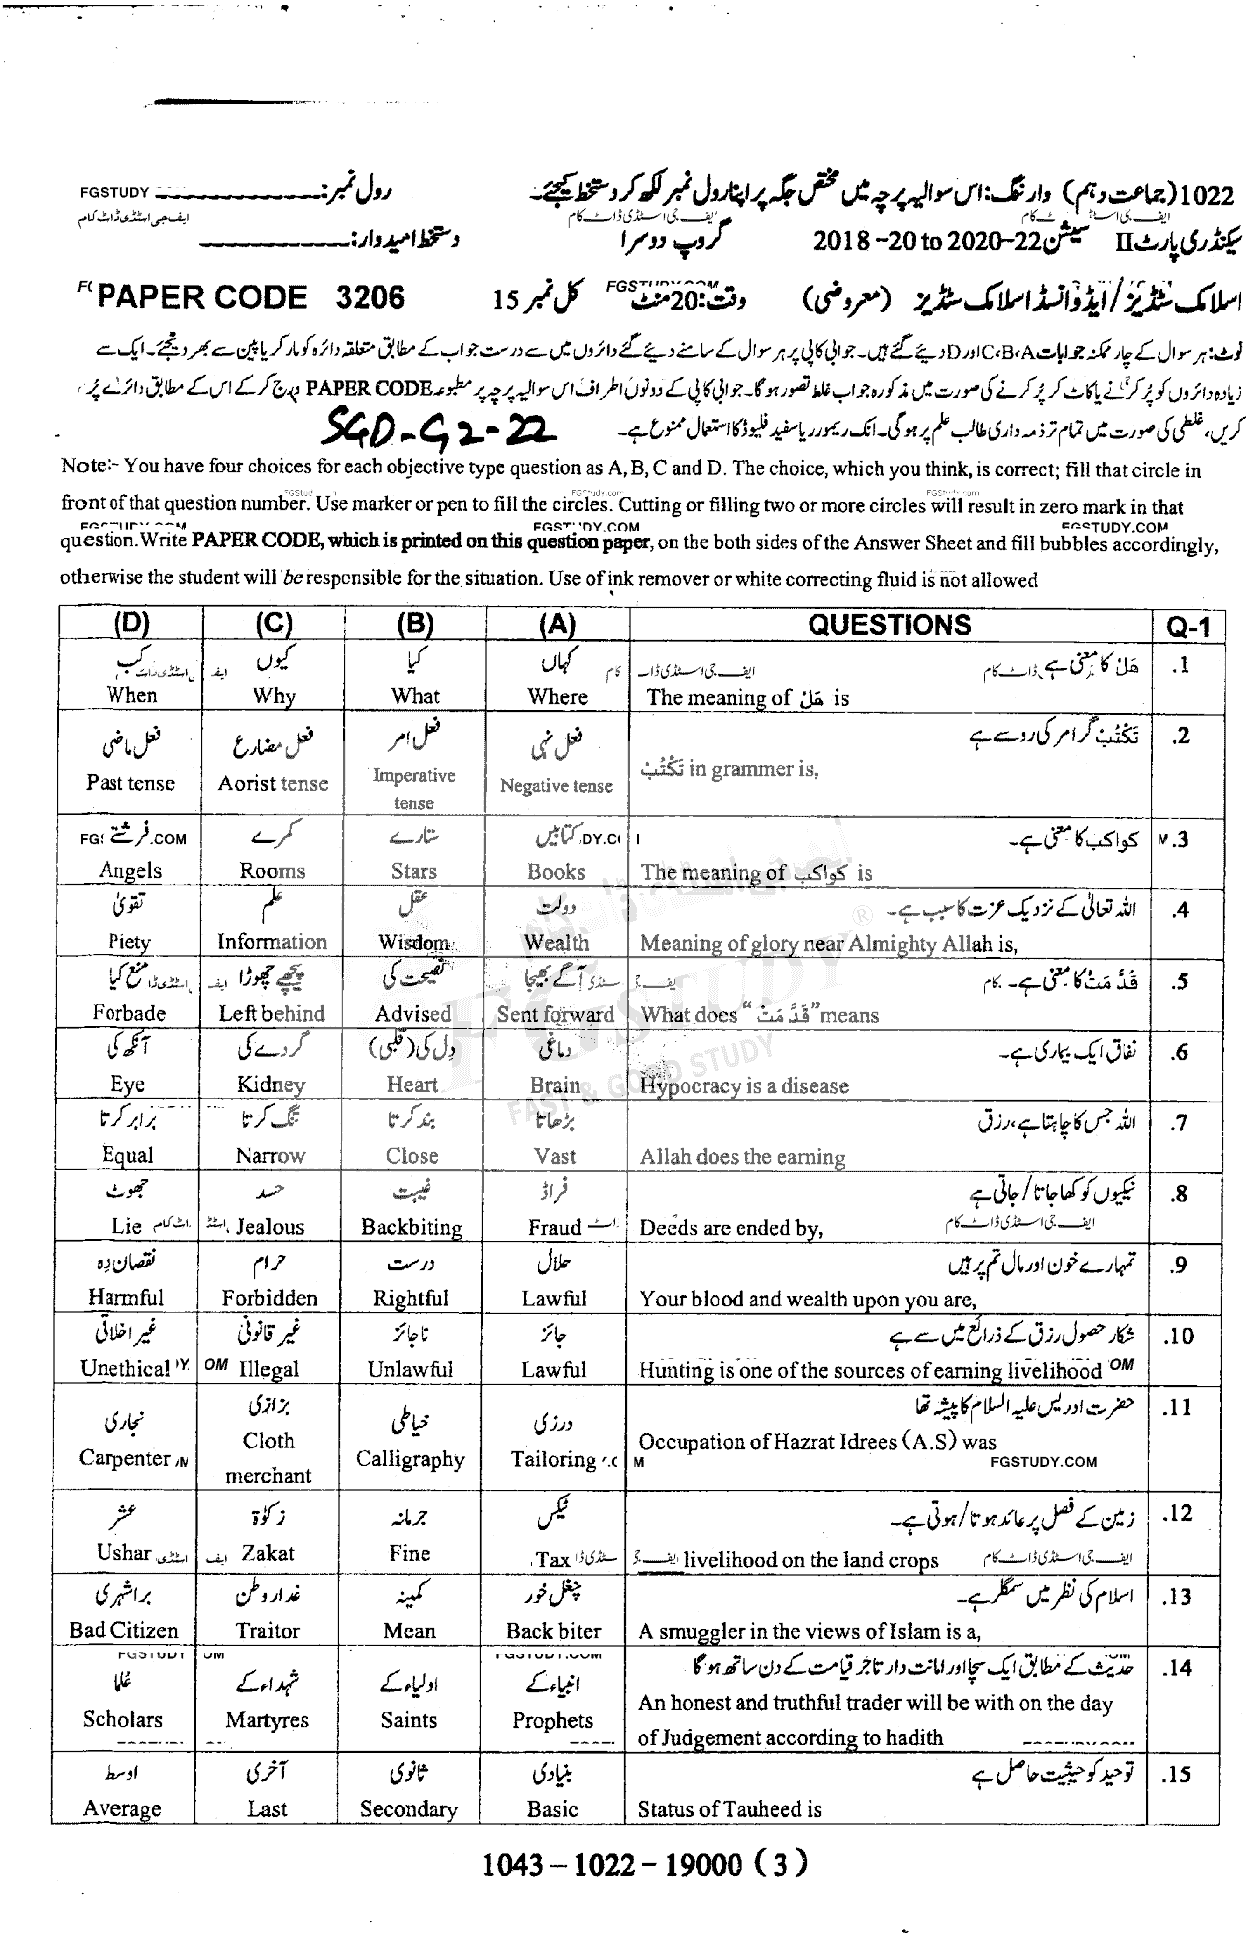 1022 (جماعت دہم) وارننگ: اس سوالیہ پرچہ میں مختص جگہ پر اپنا رول نمبر لکھ کر دستخط کیجئے۔ رول نمبر: FGSTUDY
سیکنڈری پارٹ II سیشن 2018-20 to 2020-22 گروپ دوسرا دستخط امیدوار:
اسلامک سٹڈیز/ایڈوانسڈ اسلامک سٹڈیز (معروضی) وقت: 20 منٹ کل نمبر 15 PAPER CODE 3206
نوٹ: ہر سوال کے چار ممکنہ جوابات C،B،A اور D دیئے گئے ہیں۔ جوابی کاپی پر ہر سوال کے سامنے دیئے گئے دائروں میں سے درست جواب کے مطابق متعلقہ دائرہ کو مارکر یا پین سے بھر دیجئے۔ ایک سے
زیادہ دائروں کو پُر کرنے یا کاٹ کر پُر کرنے کی صورت میں مذکورہ جواب غلط تصور ہوگا۔ جوابی کاپی کے دونوں اطراف اس سوالیہ پرچہ پر مطبوعہ PAPER CODE درج کر کے اس کے مطابق دائرے پُر
کریں، غلطی کی صورت میں تمام تر ذمہ داری طالب علم پر ہوگی۔ انک ریمور یا سفید فلیوڈ کا استعمال ممنوع ہے۔ SGD-G2-22
Note:- You have four choices for each objective type question as A, B, C and D. The choice, which you think, is correct; fill that circle in
front of that question number. Use marker or pen to fill the circles. Cutting or filling two or more circles will result in zero mark in that
FGSTUDY.COM FGSTUDY.COM FGSTUDY.COM
question. Write PAPER CODE, which is printed on this question paper, on the both sides of the Answer Sheet and fill bubbles accordingly,
otherwise the student will be responsible for the situation. Use of ink remover or white correcting fluid is not allowed
(D) (C) (B) (A) QUESTIONS Q-1
کب کیوں کیا کہاں ھَلْ کا معنی ہے .1
When Why What Where The meaning of ھَلْ is
فعل ماضی فعل مضارع فعل امر فعل نہی تَکْتُبْ گرامر کی رو سے ہے .2
Past tense Aorist tense Imperative tense Negative tense تَکْتُبْ in grammer is,
فرشتے کمرے ستارے کتابیں کواکب کا معنی ہے۔ .3
Angels Rooms Stars Books The meaning of کواکب is
تقویٰ علم عقل دولت اللہ تعالیٰ کے نزدیک عزت کا سبب ہے۔ .4
Piety Information Wisdom Wealth Meaning of glory near Almighty Allah is,
منع کیا پیچھے چھوڑا نصیحت کی آگے بھیجا قَدَّ مَتْ کا معنی ہے۔ .5
Forbade Left behind Advised Sent forward What does "قَدَّ مَتْ" means
آنکھ کی گردے کی دل کی (قلبی) دماغی نفاق ایک بیماری ہے۔ .6
Eye Kidney Heart Brain Hypocracy is a disease
برابر کرتا تنگ کرتا بند کرتا بڑھاتا اللہ جس کا چاہتا ہے، رزق .7
Equal Narrow Close Vast Allah does the earning
جھوٹ حسد غیبت فراڈ نیکیوں کو کھا جاتا/جاتی ہے .8
Lie Jealous Backbiting Fraud Deeds are ended by,
نقصان دہ حرام درست حلال تمہارے خون اور مال تم پر ہیں .9
Harmful Forbidden Rightful Lawful Your blood and wealth upon you are,
غیر اخلاقی غیر قانونی ناجائز جائز شکار حصول رزق کے ذرائع میں سے ہے .10
Unethical Illegal Unlawful Lawful Hunting is one of the sources of earning livelihood
نجاری بزازی خیاطی درزی حضرت ادریس علیہ السلام کا پیشہ تھا .11
Carpenter Cloth merchant Calligraphy Tailoring Occupation of Hazrat Idrees (A.S) was
FGSTUDY.COM
عشر زکوٰۃ جرمانہ ٹیکس زمین کے فصل پر عائد ہوتا/ہوتی ہے۔ .12
Ushar Zakat Fine Tax livelihood on the land crops
برا شہری غدار وطن کمینہ چغل خور اسلام کی نظر میں سمگلر ہے۔ .13
Bad Citizen Traitor Mean Back biter A smuggler in the views of Islam is a,
علما شہداء کے اولیاء کے انبیاء کے حدیث کے مطابق ایک سچا اور امانت دار تاجر قیامت کے دن ساتھ ہوگا .14
Scholars Martyres Saints Prophets An honest and truthful trader will be with on the day
of Judgement according to hadith
اوسط آخری ثانوی بنیادی توحید کو حیثیت حاصل ہے .15
Average Last Secondary Basic Status of Tauheed is
1043 – 1022 – 19000 ( 3 )